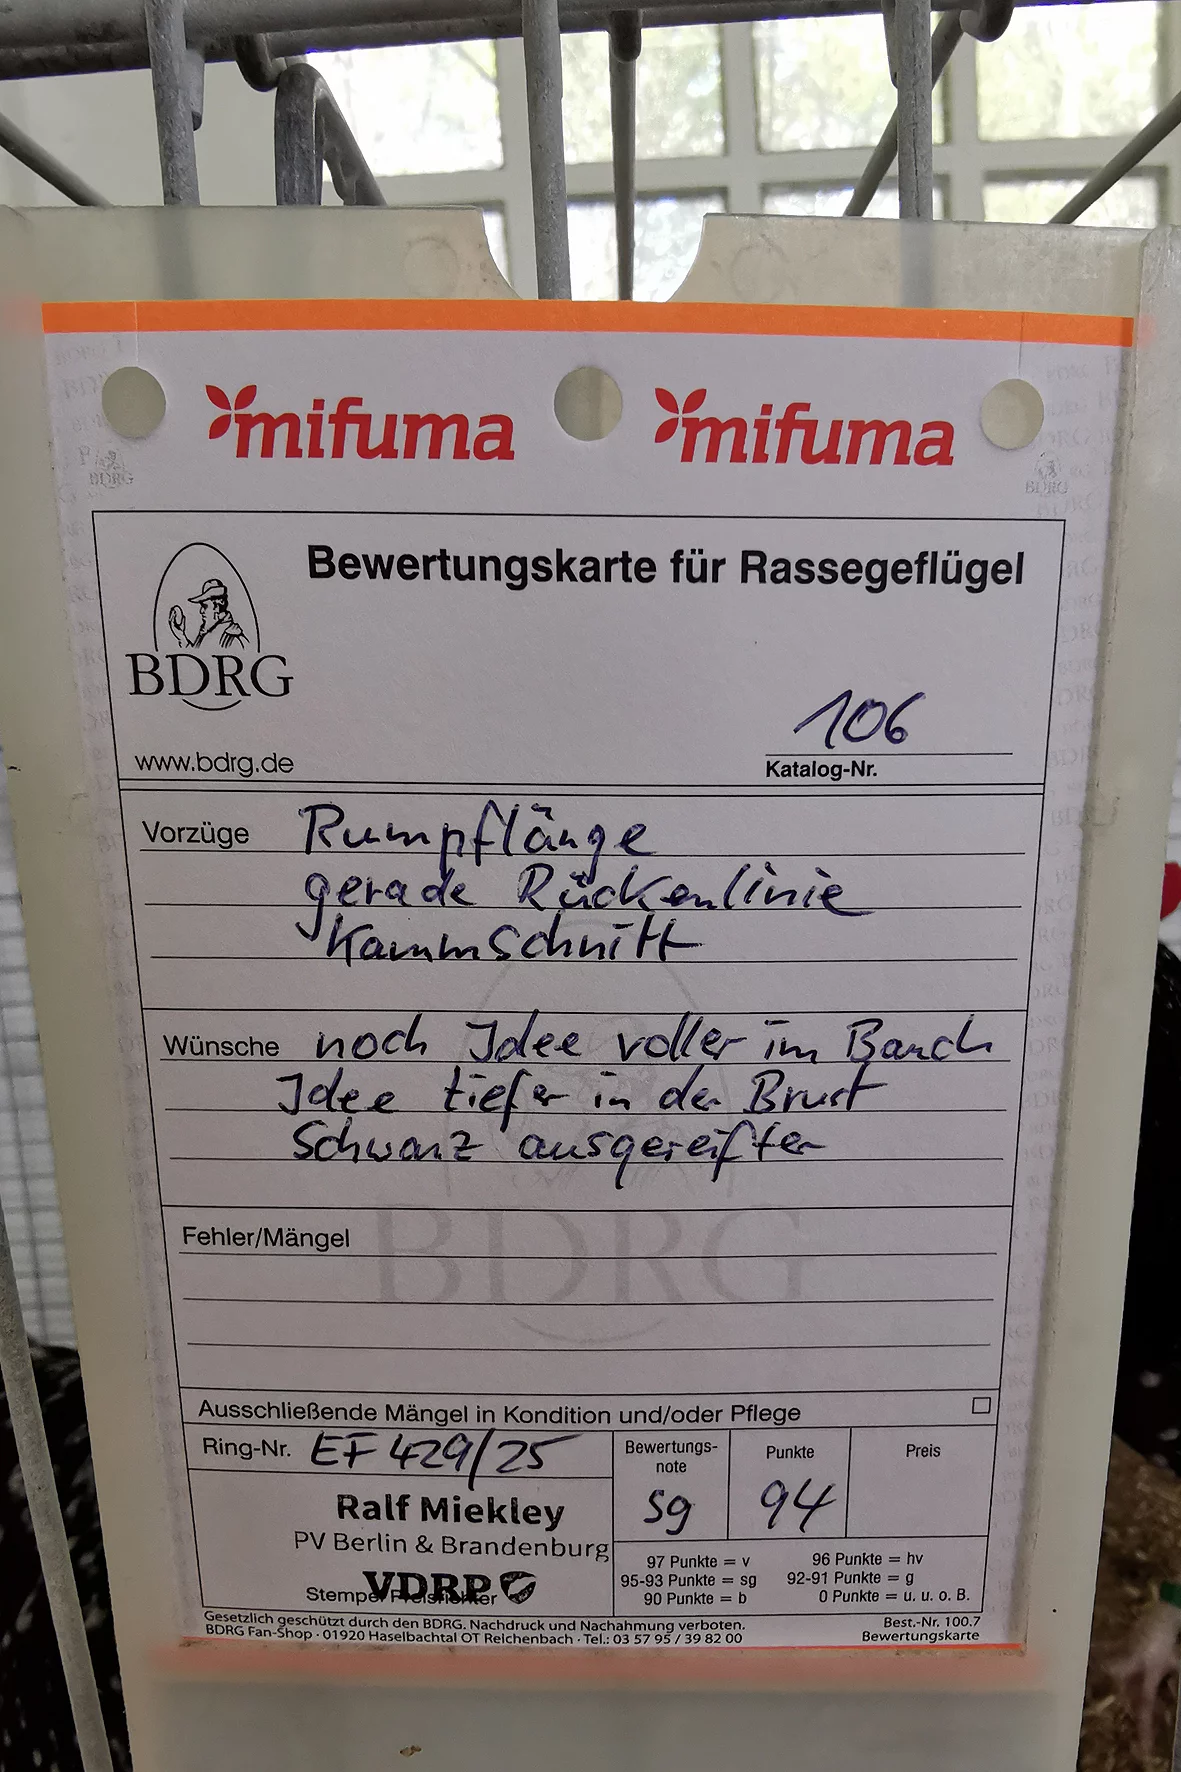 mifuma mifuma
BDRG BDRG
Bewertungskarte für Rassegeflügel
BDRG
www.bdrg.de
106
Katalog-Nr.
Vorzüge Rumpflänge
gerade Rückenlinie
Kammschnitt
Wünsche noch Idee voller im Bauch
Idee tiefer in der Brust
Schwanz ausgereifter
BDRG
Fehler/Mängel
Ausschließende Mängel in Kondition und/oder Pflege
Ring-Nr. EF 429/25
Bewertungs-
note
sg
Punkte
94
Preis
Ralf Miekley
PV Berlin & Brandenburg
VDRP
Stempel Preisrichter
97 Punkte = v 96 Punkte = hv
95-93 Punkte = sg 92-91 Punkte = g
90 Punkte = b 0 Punkte = u. u. o. B.
Gesetzlich geschützt durch den BDRG. Nachdruck und Nachahmung verboten.
BDRG Fan-Shop · 01920 Haselbachtal OT Reichenbach · Tel.: 03 57 95 / 39 82 00
Best.-Nr. 100.7
Bewertungskarte